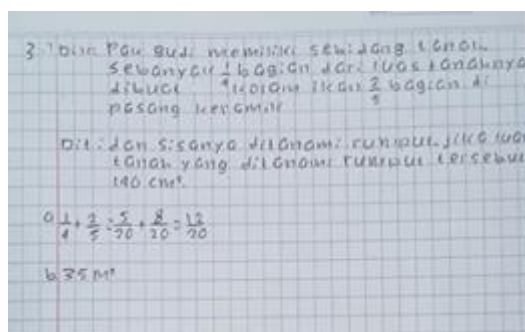 3. Dik: Pak Budi memiliki sebidang tanah
sebanyak 1/4 bagian dari luas tanahnya
dibuat kolam ikan 2/5 bagian di
pasang keramik
Dit: dan sisanya ditanami rumput. jika luas
tanah yang ditanami rumput tersebut
140 cm².
a 1/4 + 2/5 = 5/20 + 8/20 = 13/20
b 35 m²